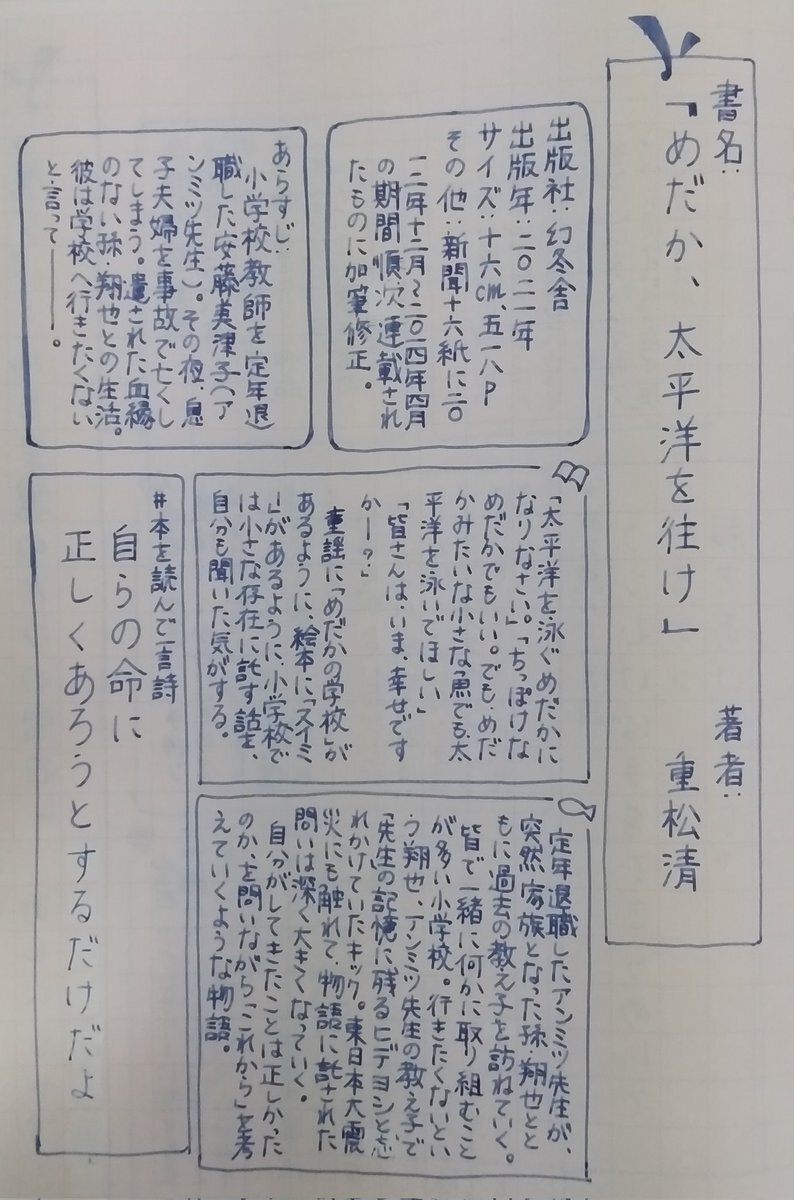 書名:
「めだか、太平洋を往け」
著者:
重松清
出版社:幻冬舎
出版年:二〇二一年
サイズ:十六cm、五一八P
その他:新聞十六紙に二〇
一二年十二月〜二〇一四年四月
の期間順次連載され
たものに加筆修正。
あらすじ:
小学校教師を定年退
職した安藤美津子(ア
ンミツ先生)。その夜、息
子夫婦を事故で亡くし
てしまう。遺された血縁
のない孫・翔也との生活。
彼は学校へ行きたくない
と言って――。
「太平洋を泳ぐめだかに
なりなさい。」「ちっぽけな
めだかでもいい。でも、めだ
かみたいな小さな魚でも、太
平洋を泳いでほしい」
「皆さんは、いま、幸せです
かー?」
童謡に「めだかの学校」が
あるように、絵本に「スイミ
ー」があるように、小学校で
は小さな存在に託す話を、
自分も聞いた気がする。
定年退職したアンミツ先生が、
突然家族となった孫・翔也とと
もに過去の教え子を訪ねていく。
皆で一緒に何かに取り組むこと
が多い小学校。行きたくないとい
う翔也、アンミツ先生の教え子で
先生の記憶に残るヒデヨシと忘
れかけていたキック。東日本大震
災にも触れて、物語に託された
問いは深く大きくなっていく。
自分がしてきたことは正しかった
のか、を問いながら「これから」を考
えていくような物語。
#本を読んで一言詩
自らの命に
正しくあろうとするだけだよ